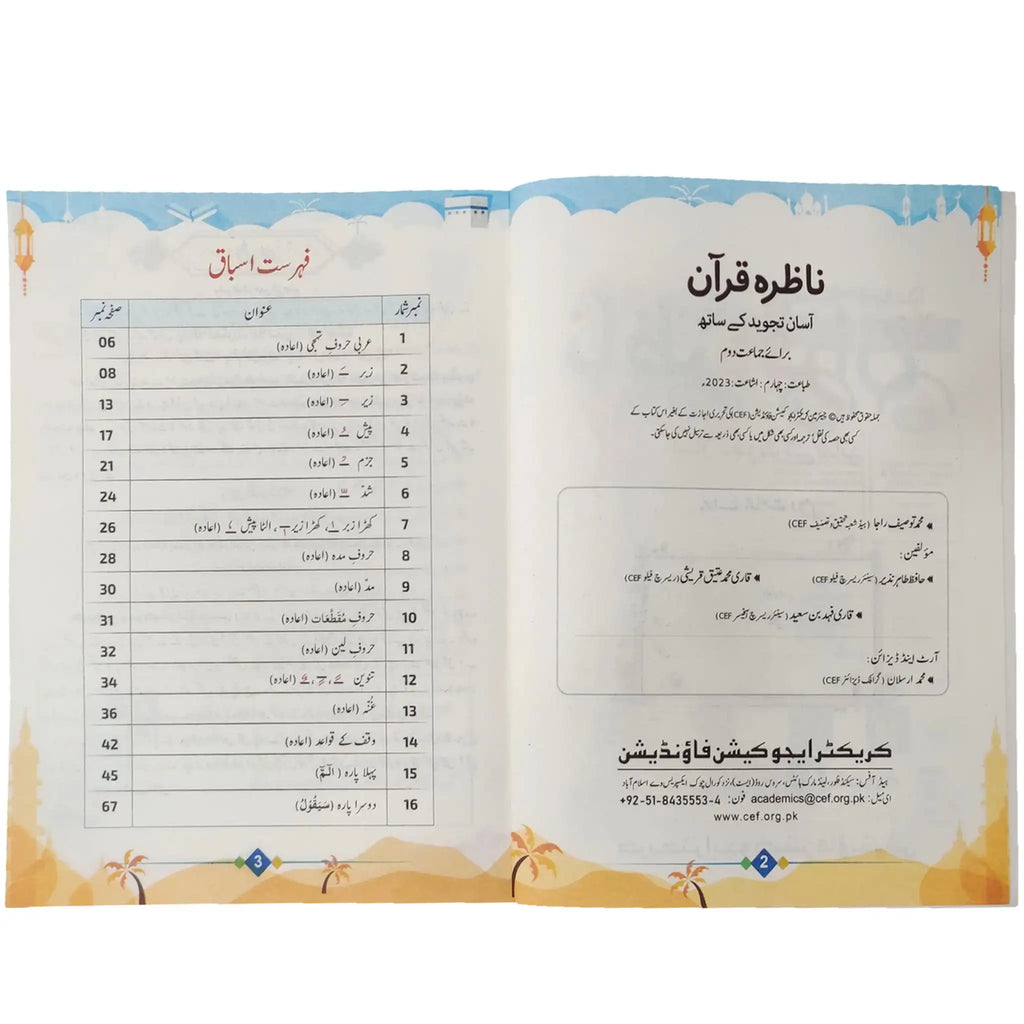 ناظرہ قرآن
آسان تجوید کے ساتھ
برائے جماعت دوم
طباعت: چہارم : اشاعت: 2023ء
جملہ حقوق محفوظ ہیں © چیئرمین کریکٹر ایجوکیشن فاؤنڈیشن (CEF) کی تحریری اجازت کے بغیر اس کتاب کے
کسی بھی حصہ کی نقل، ترجمہ اور کسی بھی شکل میں یا کسی بھی ذریعہ سے ترسیل نہیں کی جا سکتی۔
محمد توصیف راجا (ہیڈ شعبہ تحقیق و تصنیف CEF)
مؤلفین:
حافظ طاہر نذیر (سینئر ریسرچ فیلو CEF) قاری محمد عتیق قریشی (ریسرچ فیلو CEF)
قاری فہد بن سعید (سینئر ریسرچ آفیسر CEF)
آرٹ اینڈ ڈیزائن:
محمد ارسلان (گرافک ڈیزائنر CEF)
کریکٹر ایجوکیشن فاؤنڈیشن
ہیڈ آفس: سیکنڈ فلور، لینڈ مارک ہائٹس، سروس روڈ (ایسٹ)، نزد کورال چوک ایکسپریس وے اسلام آباد
ای میل: academics@cef.org.pk فون: +92-51-8435553-4
www.cef.org.pk
2
فہرست اسباق
نمبر شمار عنوان صفحہ نمبر
1 عربی حروفِ تہجی (اعادہ) 06
2 زبر ـَ (اعادہ) 08
3 زیر ـِ (اعادہ) 13
4 پیش ـُ (اعادہ) 17
5 جزم ـْ (اعادہ) 21
6 شدّ ـّ (اعادہ) 24
7 کھڑا زبر ـٰ، کھڑا زیر ـٖ، الٹا پیش ـٗ (اعادہ) 26
8 حروفِ مدہ (اعادہ) 28
9 مدّ (اعادہ) 30
10 حروفِ مُقَطَّعَات (اعادہ) 31
11 حروفِ لین (اعادہ) 32
12 تنوین ـً، ـٍ، ـٌ (اعادہ) 34
13 غُنّہ (اعادہ) 36
14 وقف کے قواعد (اعادہ) 42
15 پہلا پارہ (الٓمّٓ) 45
16 دوسرا پارہ (سَيَقُوْلُ) 67
3